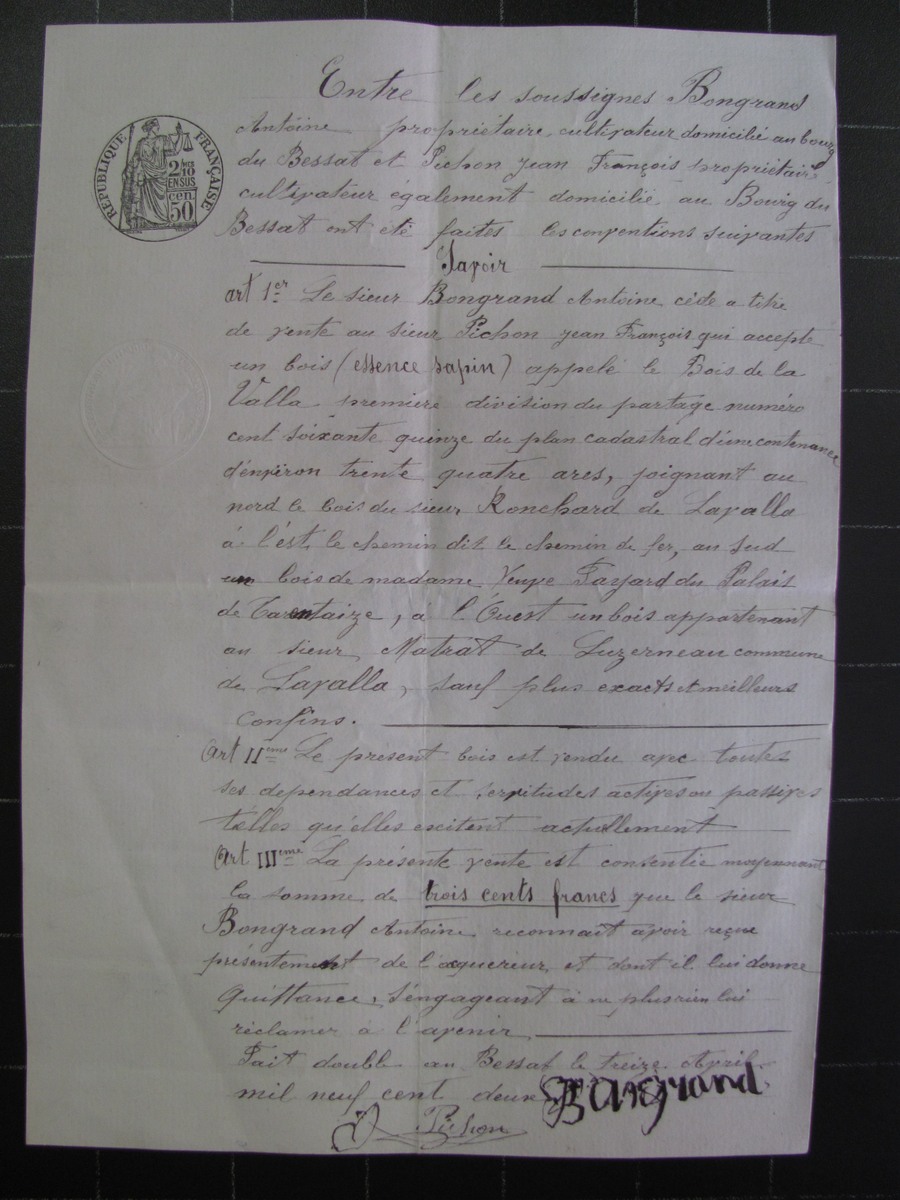 Entre les soussignés Bongrand
RÉPUBLIQUE FRANÇAISE
2/10 EN SUS
50 cen
Antoine propriétaire cultivateur domicilié au bourg
du Bessat et Pichon Jean François propriétaire
cultivateur également domicilié au Bourg du
Bessat ont été faites les conventions suivantes
Savoir
art 1er Le sieur Bongrand Antoine cède a titre
de vente au sieur Pichon Jean François qui accepte
un bois (essence sapin) appelé le Bois de la
Valla première division du partage numéro
cent soixante quinze du plan cadastral d'une contenance
d'environ trente quatre ares, joignant au
nord le bois du sieur Ronchard de Lavalla
à l'est le chemin dit le chemin de fer, au Sud
un bois de madame Veuve Fayard du Palais
de Tarentaize, à l'Ouest un bois appartenant
au sieur Matrat de Luzerneau commune
de Lavalla, sauf plus exacts et meilleurs
confins.
art IIeme Le présent bois est vendu avec toutes
ses dependances et servitudes actives ou passives
telles qu'elles excitent actuellement
art IIIeme La présente vente est consentie moyennant
la somme de trois cents francs que le sieur
Bongrand Antoine reconnait avoir reçue
présentement de l'aquereur et dont il lui donne
Quittance, s'engageant à ne plus rien lui
réclamer à l'avenir
Fait double au Bessat le treize Avril
mil neuf cent deux Bongrand
Pichon